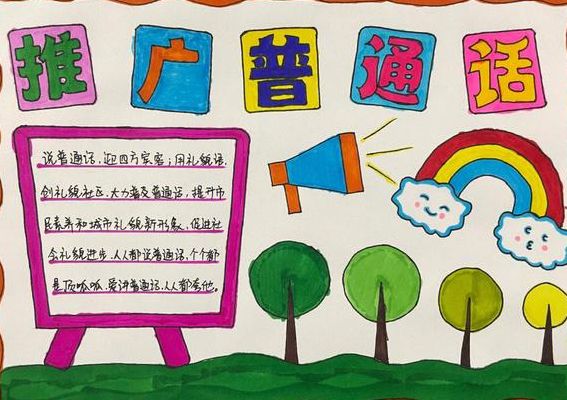 推广普通话
说普通话，迎四方宾客；用礼貌语，
创礼貌社区。大力普及普通话，提升市
民素养和城市礼貌新形象，促进社
会礼貌进步。人人都说普通话，个个都
是顶呱呱。爱讲普通话，人人都夸他。